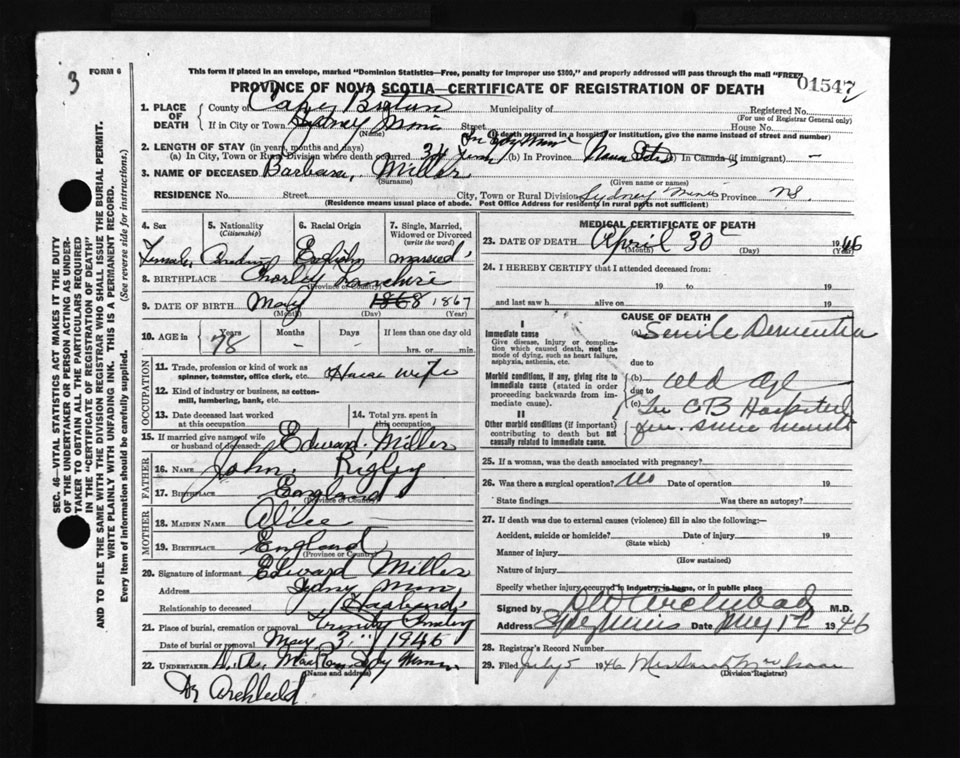 3
FORM 6
This form if placed in an envelope, marked "Dominion Statistics—Free, penalty for improper use $300," and properly addressed will pass through the mail "FREE"
01547
PROVINCE OF NOVA SCOTIA—CERTIFICATE OF REGISTRATION OF DEATH
SEC. 46—VITAL STATISTICS ACT MAKES IT THE DUTY
OF THE UNDERTAKER OR PERSON ACTING AS UNDER-
TAKER TO OBTAIN ALL THE PARTICULARS REQUIRED
IN THE "CERTIFICATE OF REGISTRATION OF DEATH"
AND TO FILE THE SAME WITH THE DIVISION REGISTRAR WHO SHALL ISSUE THE BURIAL PERMIT.
WRITE PLAINLY WITH UNFADING INK. THIS IS A PERMANENT RECORD.
Every item of information should be carefully supplied. (See reverse side for instructions.)
1. PLACE OF DEATH
County of Cape Breton Municipality of Registered No.
(For use of Registrar General only)
If in City or Town Sydney Mines Street House No.
(Name) (If death occurred in a hospital or institution, give the name instead of street and number)
2. LENGTH OF STAY (in years, months and days)
(a) In City, Town or Rural Division where death occurred 34 years (b) In Province Nova Scotia (c) In Canada (if immigrant) —
In Sydy Mines
3. NAME OF DECEASED Barbara, Miller
(Surname) (Given name or names)
RESIDENCE No. Street City, Town or Rural Division Sydney Mines Province NS.
(Residence means usual place of abode. Post Office Address for residents in rural parts not sufficient)
4. Sex 5. Nationality (Citizenship) 6. Racial Origin 7. Single, Married, Widowed or Divorced (write the word)
Female, English married
8. BIRTHPLACE Chorley Lancshire
(Province or Country)
9. DATE OF BIRTH May 1868 1867
(Month) (Day) (Year)
10. AGE in Years Months Days If less than one day old
78 hrs. or min.
OCCUPATION
11. Trade, profession or kind of work as spinner, teamster, office clerk, etc. House wife
12. Kind of industry or business, as cotton-mill, lumbering, bank, etc.
13. Date deceased last worked at this occupation
14. Total yrs. spent in this occupation
15. If married give name of wife or husband of deceased Edward. Miller
FATHER
16. NAME John. Rigley
17. Birthplace England
(Province or Country)
MOTHER
18. MAIDEN NAME Alice
19. BIRTHPLACE England
(Province or Country)
20. Signature of informant Edward Miller
Address Sydney Mines
Relationship to deceased Husband
21. Place of burial, cremation or removal Trinity
Date of burial or removal May 3" 1946
22. UNDERTAKER Sydy Mines
(Name and address)
Dr Archbald
MEDICAL CERTIFICATE OF DEATH
23. DATE OF DEATH April 30 1946
(Month) (Day) (Year)
24. I HEREBY CERTIFY that I attended deceased from:
19 to 19
and last saw h alive on 19
CAUSE OF DEATH
I
Immediate cause
Give disease, injury or complication which caused death, not the mode of dying, such as heart failure, asphyxia, asthenia, etc.
(a) Senile Dementia
due to
Morbid conditions, if any, giving rise to immediate cause (stated in order proceeding backwards from immediate cause).
(b) old age
due to
(c) In C B Hospital
II
Other morbid conditions (if important) contributing to death but not causally related to immediate cause.
months
25. If a woman, was the death associated with pregnancy?
26. Was there a surgical operation? no Date of operation 19
State findings Was there an autopsy?
27. If death was due to external causes (violence) fill in also the following:—
Accident, suicide or homicide? Date of injury 19
(State which)
Manner of injury
(How sustained)
Nature of injury
Specify whether injury occurred in industry, in home, or in public place
Signed by Archibald M.D.
Address Syd Mines Date May 1st 1946
28. Registrar's Record Number
29. Filed July 5 1946 Mrs Sarah Mac Isaac
(Division Registrar)